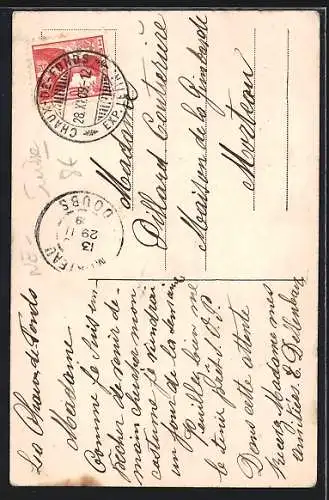 CHAUX-DE-FONDS
28.XI.09.-12
EXP. LET.
MORTEAU
DOUBS
13
29 11
09
Suisse
8€
Madame
Dillard Couturière
Maison de la Gendarde
Morteau
La Chaux de Fonds
Madame
Comme je suis em
pêcher de venir de-
main chercher mon
costume je viendrai
un jour de la semaine
Veuillez bien me
le tenir prêt S. V. P.
Dans cette attente
recevez Madame mes
amitiés. E.